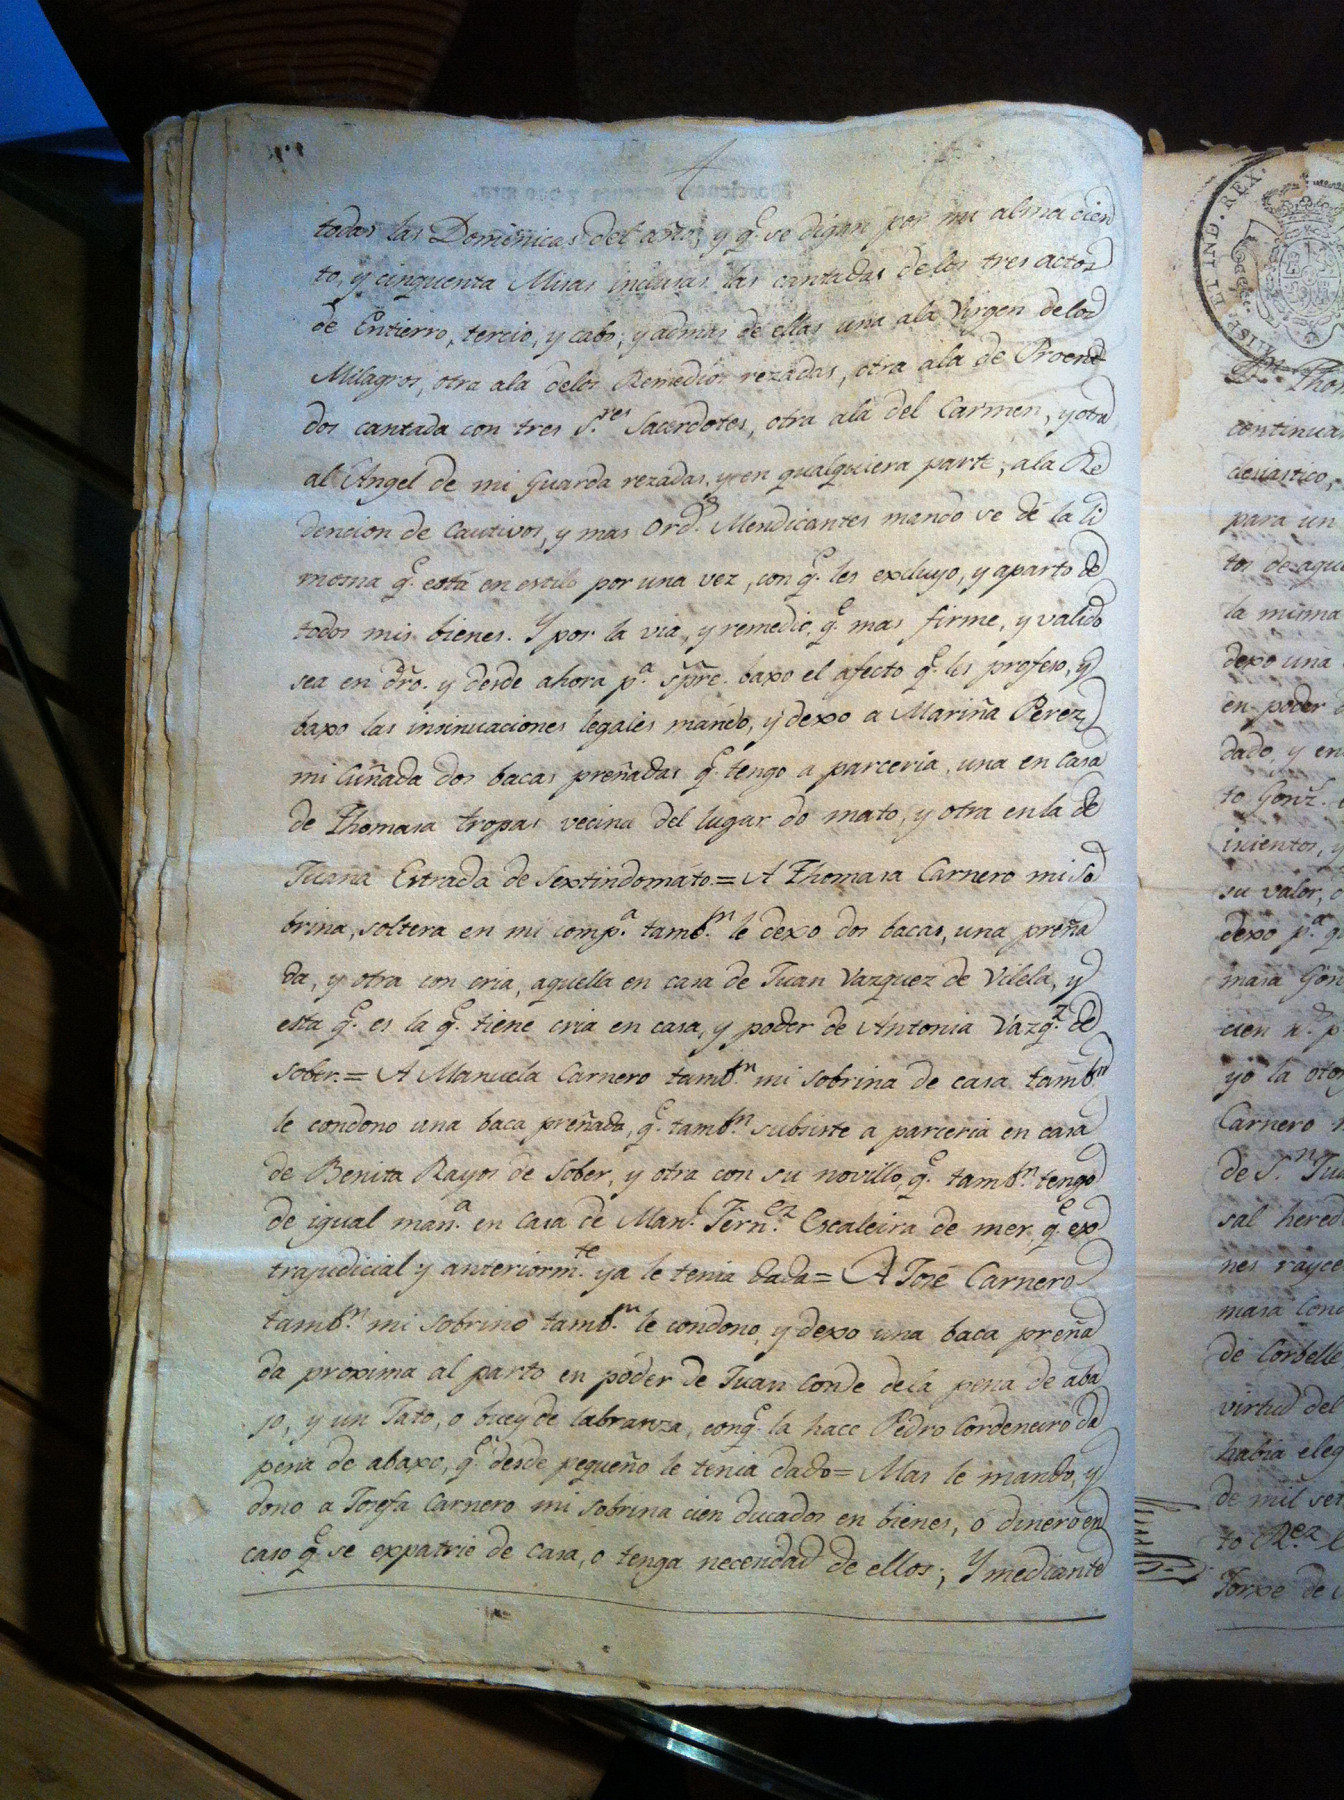 todas las Dominicas del año, y q.e se digan por mi alma cien
to, y cinquenta Misas inclusas las cantadas de los tres actos
de Entierro, tercio, y cabo, y admas de ellas una ala Virgen delos
Milagros, otra ala delos Remedios rezadas, otra ala de Proen
dos cantada con tres S.res Sacerdotes, otra ala del Carmen, y otra
al Angel de mi Guarda rezadas y en qualquiera parte, ala Re
dencion de Cautivos, y mas Ord.s Mendicantes mando se dé la li
mosna q.e está en estilo por una vez, con q.e les excluyo, y aparto de
todos mis bienes. Y por la via, y remedio, q.e mas firme, y valido
sea en dro. y desde ahora p.a spre. baxo el afecto q.e les profeso, y
baxo las insinuaciones legales mando, y dexo a Mariña Perez
mi Cuñada dos bacas preñadas q.e tengo a parceria, una en Casa
de Thomasa tropas vecina del lugar do mato, y otra en la de
Juana Estrada de Sextindomáto = A Thomasa Carnero mi so
brina, soltera en mi comp.a tamb.n le dexo dos bacas, una preña
da, y otra con cria, aquella en casa de Juan Vazquez de Vilela, y
esta q.e es la q.e tiene cria en casa, y poder de Antonia Vázq.z de
Sober = A Manuela Carnero tamb.n mi sobrina de casa tamb.n
le condono una baca preñada, q.e tamb.n subsiste a parceria en casa
de Benita Rayos de Sober, y otra con su novillo, q.e tamb.n tengo
de igual man.a en Casa de Man.l Fern.ez Escaleira de mer q.e ex
trajudicial y anteriorm.te ya le tenia dada = A José Carnero
tamb.n mi sobrino tamb.n le condono, y dexo una baca preña
da proxima al parto en póder de Juan Conde dela pena de aba
jo, y un Jato, o buey de labranza, conq.e la hace Pedro Cordeneiro da
pena de abaxo, q.e desde pequeño le tenia dado = Mas le mando, y
dono a Josefa Carnero mi sobrina cien ducados en bienes, o dinero en
caso q.e se expatrie de casa, o tenga necesidad de ellos; Y mediante
ET IND. REX.
HISP.
continua
para un
la misma
dexo una
en poder d
dado, y en
to Gonz.
su valor, o
dexo p.a q
masa Gon
yo la oto
Carnero
de S.n Jua
sal hered
masa Cond
de Corbelle
virtud del
habia eleg
de mil set